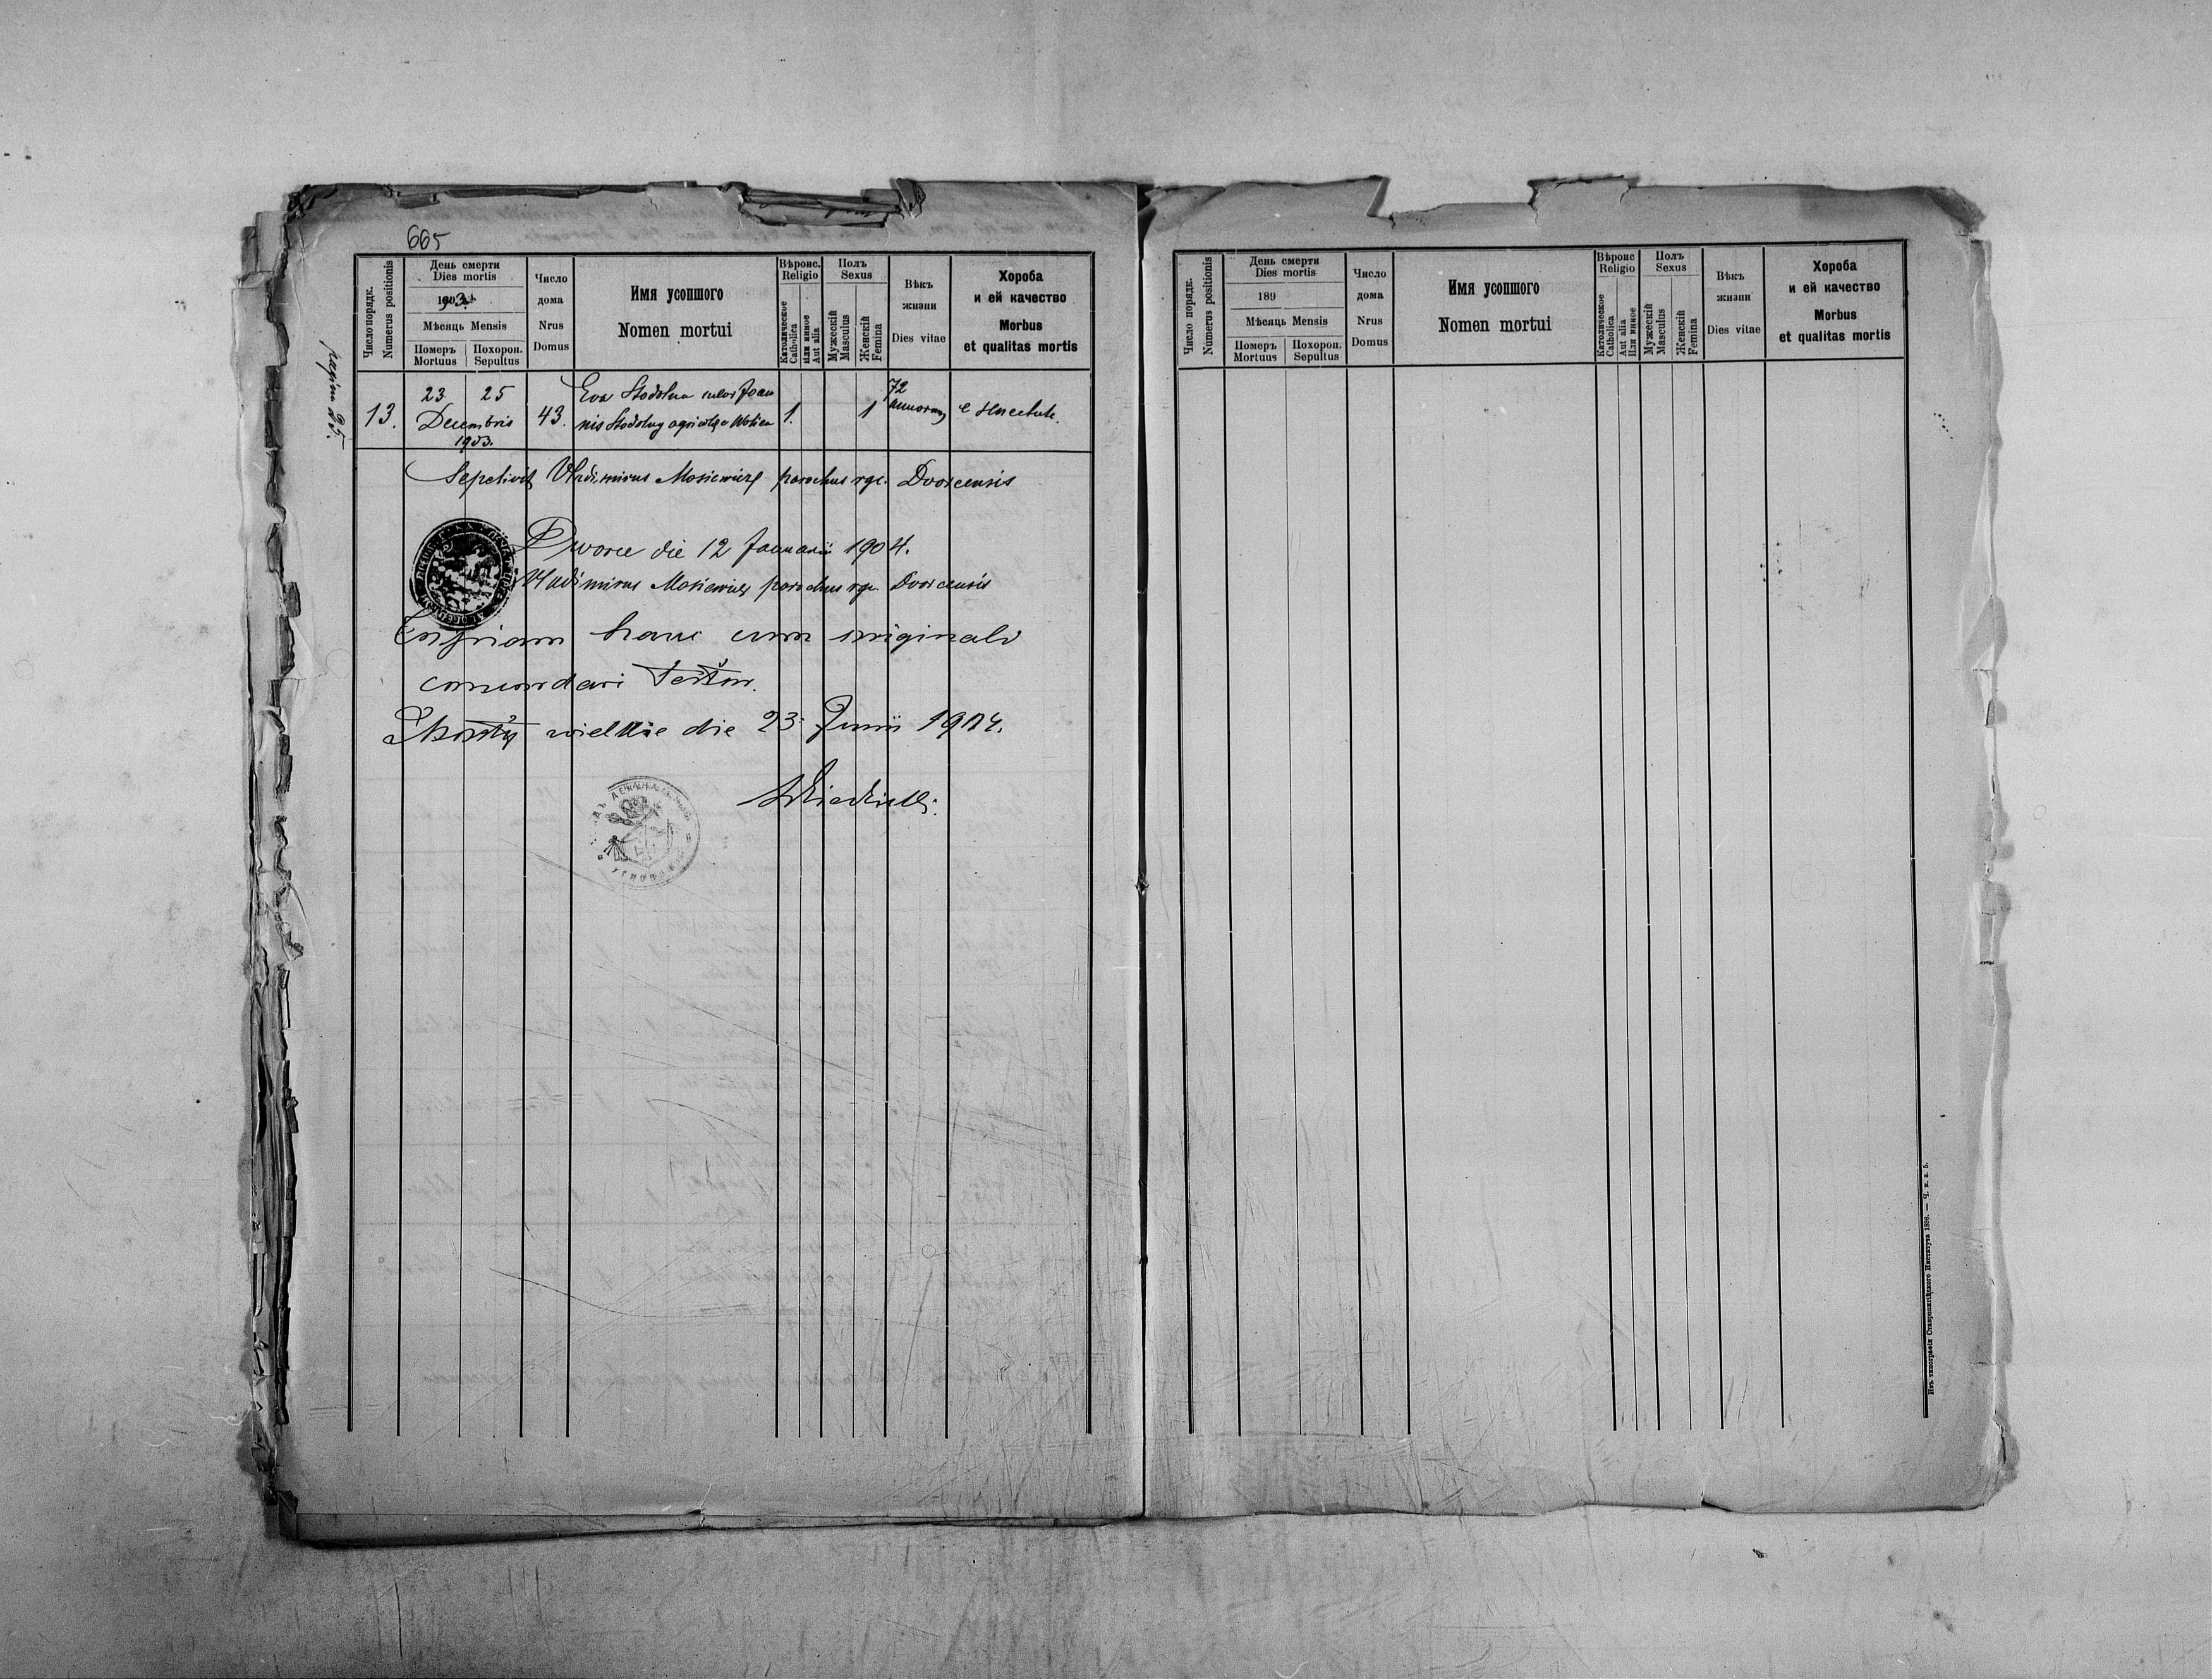 665
pagina 25.
Число порядк.
Numerus positionis
День смерти
Dies mortis
1903
Мѣсяць Mensis
Померъ Похорон.
Mortuus Sepultus
Число
дома
Nrus
Domus
Имя усопшого
Nomen mortui
Вѣроис.
Religio
Католическое
Catholica
или инное
Aut alia
Полъ
Sexus
Мужескій
Masculus
Женскій
Femina
Вѣкъ
жизни
Dies vitae
Хороба
и ей качество
Morbus
et qualitas mortis
13. 23 25
Decembris
1903.
43.
Eva Stodolna uxor Joan
nis Stodolny agricolae
1. 1
72
annorum
e senectute.
Sepelivit Vladimirus Mosiewicz parochus rgc. Dvorcensis
Dworce die 12 Januarii 1904.
Vladimirus Mosiewicz parochus rgc. Dvorcensis
hanc cum originali
concordari testor.
wielkie die 23 Junii 1904.
Число порядк.
Numerus positionis
День смерти
Dies mortis
189
Мѣсяць Mensis
Померъ Похорон.
Mortuus Sepultus
Число
дома
Nrus
Domus
Имя усопшого
Nomen mortui
Вѣроис
Religio
Католическое
Catholica
Aut alia
Или инное
Полъ
Sexus
Мужескій
Masculus
Женскій
Femina
Вѣкъ
жизни
Dies vitae
Хороба
и ей качество
Morbus
et qualitas mortis
Изъ типографіи Ставропигійского Института 1896. — Ч. к. в. 5.